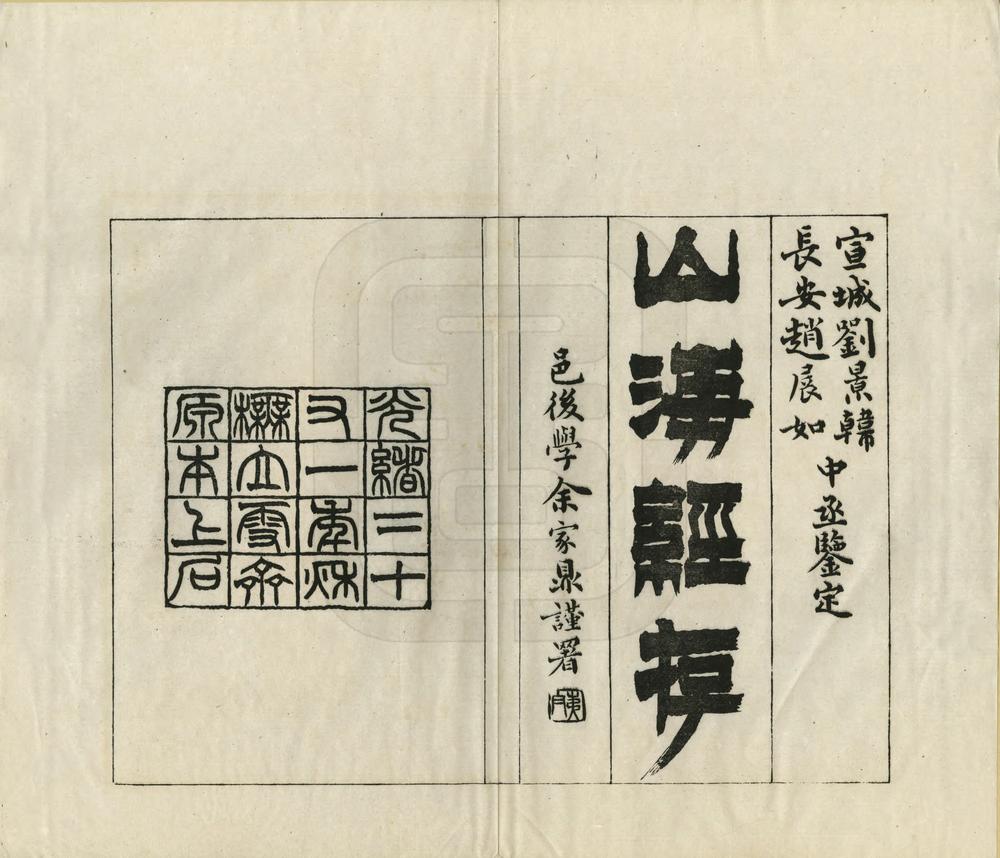 宣城劉景韓
長安趙展如
中丞鑒定
山海經存
邑後學余家鼎謹署
光緒二十
又一年秋
橅立雪齋
原本上石